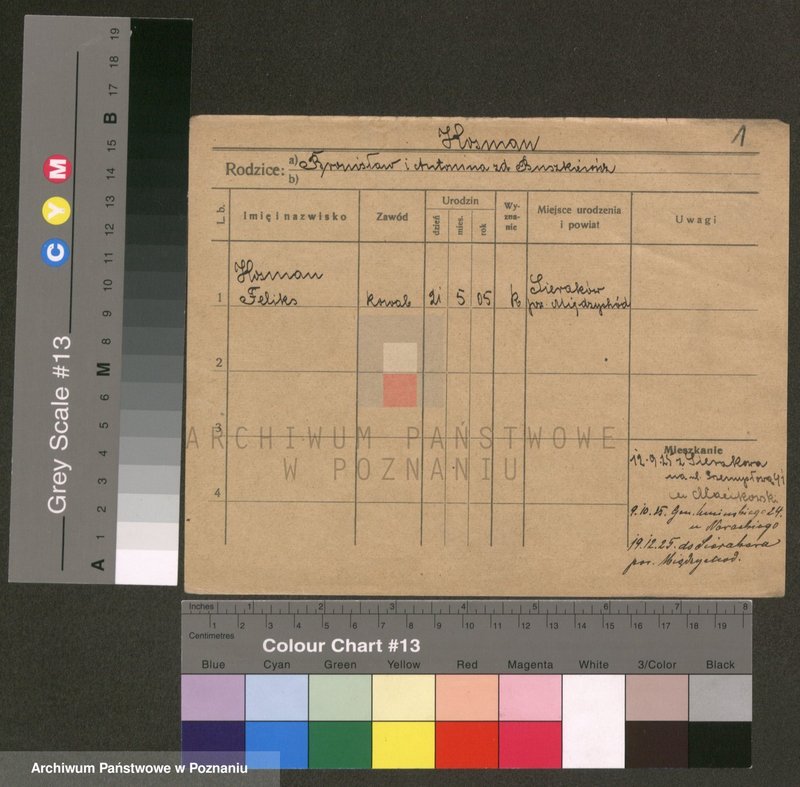 Hosman
1
Rodzice: a) Bronisław i Antonina zd. Buszkiewicz
b)
L. b.
Imię i nazwisko
Zawód
Urodzin
dzień
mies.
rok
Wy-
zna-
nie
Miejsce urodzenia
i powiat
Uwagi
Hosman
1 Feliks kowal 21 5 05 k Sieraków
pow. Międzychód
2
3
4
ARCHIWUM PAŃSTWOWE
W POZNANIU
Mieszkanie
12.9.25 z Sierakowa
na ul. Przemysłowa 41
u
9.10.25. Gen. Umińskiego 24.
u Nowackiego
19.12.25. do Sierakowa
pow. Międzychod.
Grey Scale #13
C Y M
A 1 2 3 4 5 6 M 8 9 10 11 12 13 14 15 B 17 18 19
Inches 1 2 3 4 5 6 7 8
Centimetres 1 2 3 4 5 6 7 8 9 10 11 12 13 14 15 16 17 18 19
Colour Chart #13
Blue Cyan Green Yellow Red Magenta White 3/Color Black
Archiwum Państwowe w Poznaniu